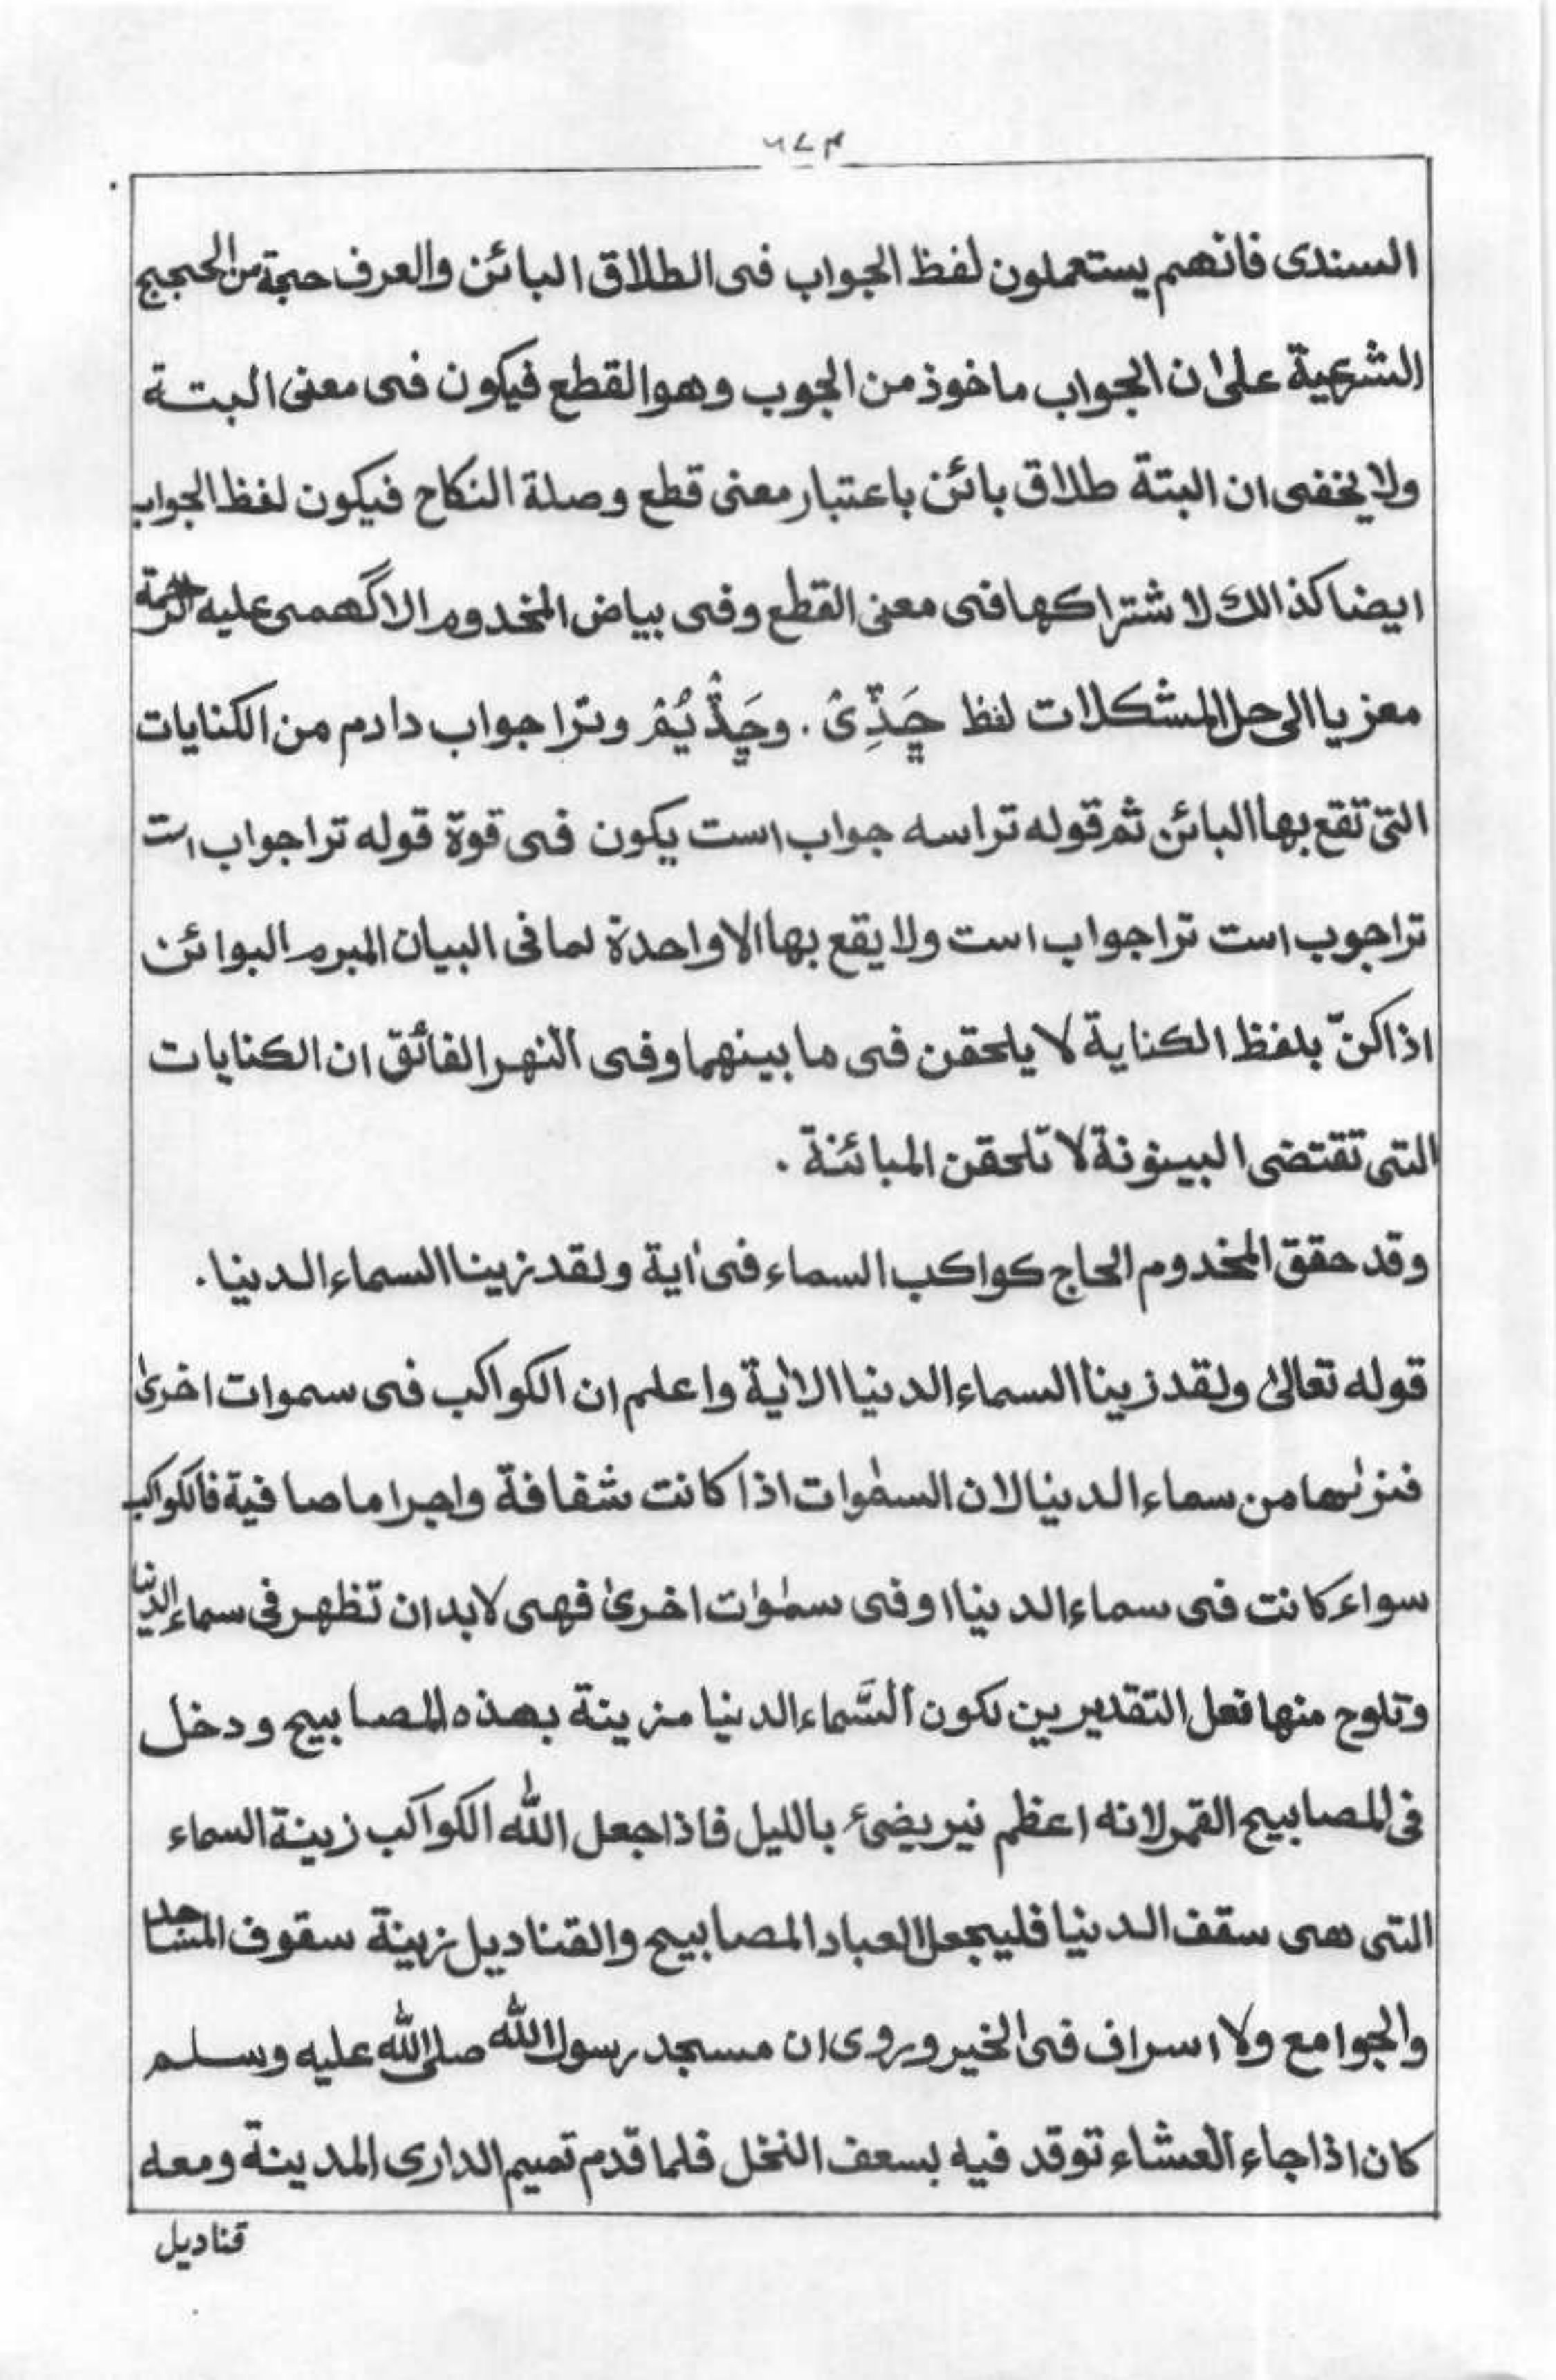 ٦٧٣
السندى فانهم يستعملون لفظ الجواب فى الطلاق البائن والعرف حجة من الحجج
الشرعية علىٰ ان الجواب ماخوذ من الجوب وهو القطع فيكون فى معنى البتة
ولا يخفى ان البتة طلاق بائن باعتبار معنى قطع وصلة النكاح فيكون لفظ الجواب
ايضا كذالك لا شتراكها فى معنى القطع وفى بياض المخدوم الاگهمى عليه الرحمة
معزيا الى حل المشكلات لفظ وترا جواب دادم من الكنايات
التى تقع بها البائن ثم قوله تراسه جواب است يكون فى قوة قوله ترا جواب است
ترا جوب است ترا جواب است ولا يقع بها الا واحدة لما فى البيان المبرم البوائن
اذا كنّ بلفظ الكناية لا يلحقن فى ما بينهما وفى النهر الفائق ان الكنايات
التى تقتضى البينونة لا تلحقن المبائنة ۔
وقد حقق المخدوم الحاج كواكب السماء فى اٰية ولقد زينا السماء الدنيا ۔
قوله تعالىٰ ولقد زينا السماء الدنيا الاٰية واعلم ان الكواكب فى سموات اخرىٰ
من سماء الدنيا لان السمٰوات اذا كانت شفافة واجراما صافية فالكواكب
سواء كانت فى سماء الدنيا او فى سمٰوٰت اخرىٰ فهى لابد ان تظهر فى سماء الدنيا
وتلوح منها فعل التقديرين تكون السَّماء الدنيا مزينة بهذه المصابيح ودخل
فى المصابيح القمر لانه اعظم نير يضئ بالليل فاذا جعل الله الكواكب زينة السماء
التى هى سقف الدنيا فليجعل العباد المصابيح والقناديل زينة سقوف المساجد
والجوامع ولا اسراف فى الخير وروى ان مسجد رسول الله صلى الله عليه وسلم
كان اذا جاء العشاء توقد فيه بسعف النخل فلما قدم تميم الدارى المدينة ومعه
قناديل